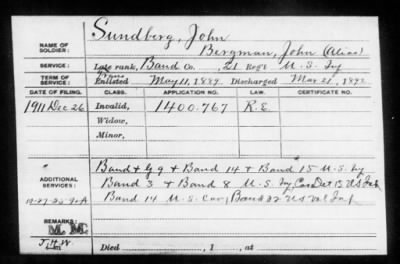 NAME OF SOLDIER: Sundberg, John
Bergman, John (Alias)
SERVICE: Late rank, Band Co. , 21 Reg't U.S. Inf
TERM OF SERVICE: Trans
Enlisted May 11, 1889. Discharged Mar. 21, 1892
DATE OF FILING. CLASS. APPLICATION NO. LAW. CERTIFICATE NO.
1911 Dec 26 Invalid, 1400.767 R.E.
Widow,
Minor,
ADDITIONAL SERVICES: Band + G 9 + Band 14 + Band 15 U.S. Inf
Band 3 + Band 8 U.S. Inf, Cas Det 13 US Inf
Band 14 U.S. Cav, Band 32 US Vol Inf.
REMARKS: M. M.
J.H.W. Died , 1 , at